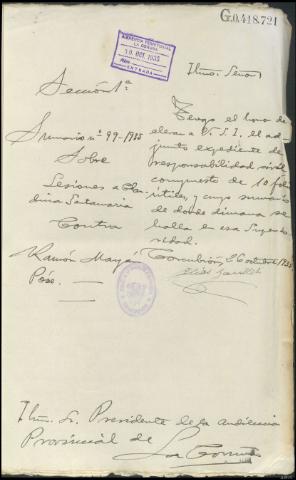 G.0.418.721
AUDIENCIA TERRITORIAL
LA CORUÑA
10 OCT. 1935
ENTRADA
Ilmo. Señor
Sección 1ª
Sumario nº 99-1935
Sobre
Lesiones a
Santamaria
Contra
Ramón
Pose.
Tengo el honor de
elevar a V.S.I. el ad-
junto expediente de
responsabilidad civil
compuesto de 10 folios
útiles, y cuyo sumario
de donde dimana se
halla en esa Superio-
ridad.
Corcubión, octubre, 1935
Ilmo. Sr. Presidente de la audiencia
Provincial de
La Coruña